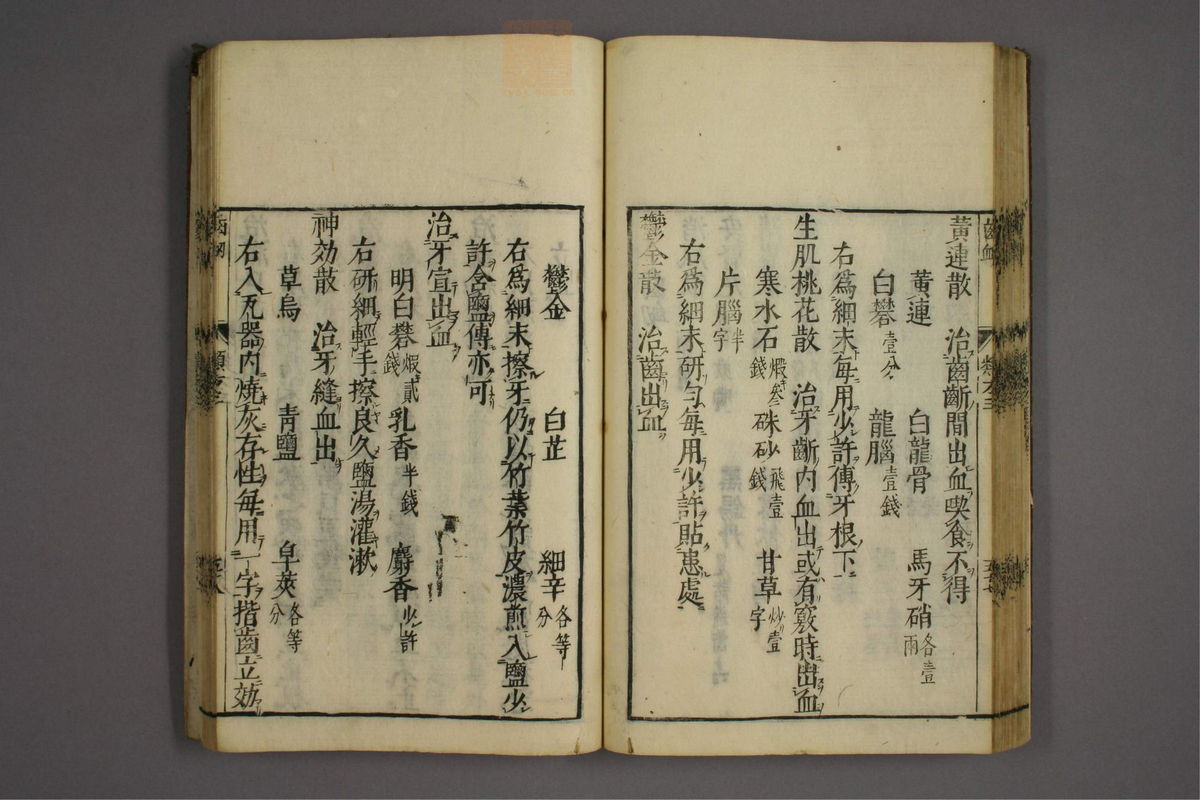 黃連散　治齒齗間出血喫食不得
黃連　白龍骨　馬牙硝各壹兩
白礬壹分　龍腦壹錢
右爲細末每用少許傅牙根下
生肌桃花散　治牙齗內血出或有竅時出血
寒水石煆叁錢　硃砂飛壹錢　甘草炒壹字
片腦半字
右爲細末研勻每用少許貼患處
鬱金散　治齒出血
鬱金　白芷　細辛各等分
右爲細末擦牙仍以竹葉竹皮濃煎入鹽少
許含嚥傅亦可
治牙宣出血
明白礬煆貳錢　乳香半錢　麝香少許
右研細輕手擦良久鹽湯灌漱
神効散　治牙縫血出
草烏　靑鹽　皁莢各等分
右入瓦器內燒灰存性每用一字揩齒立効